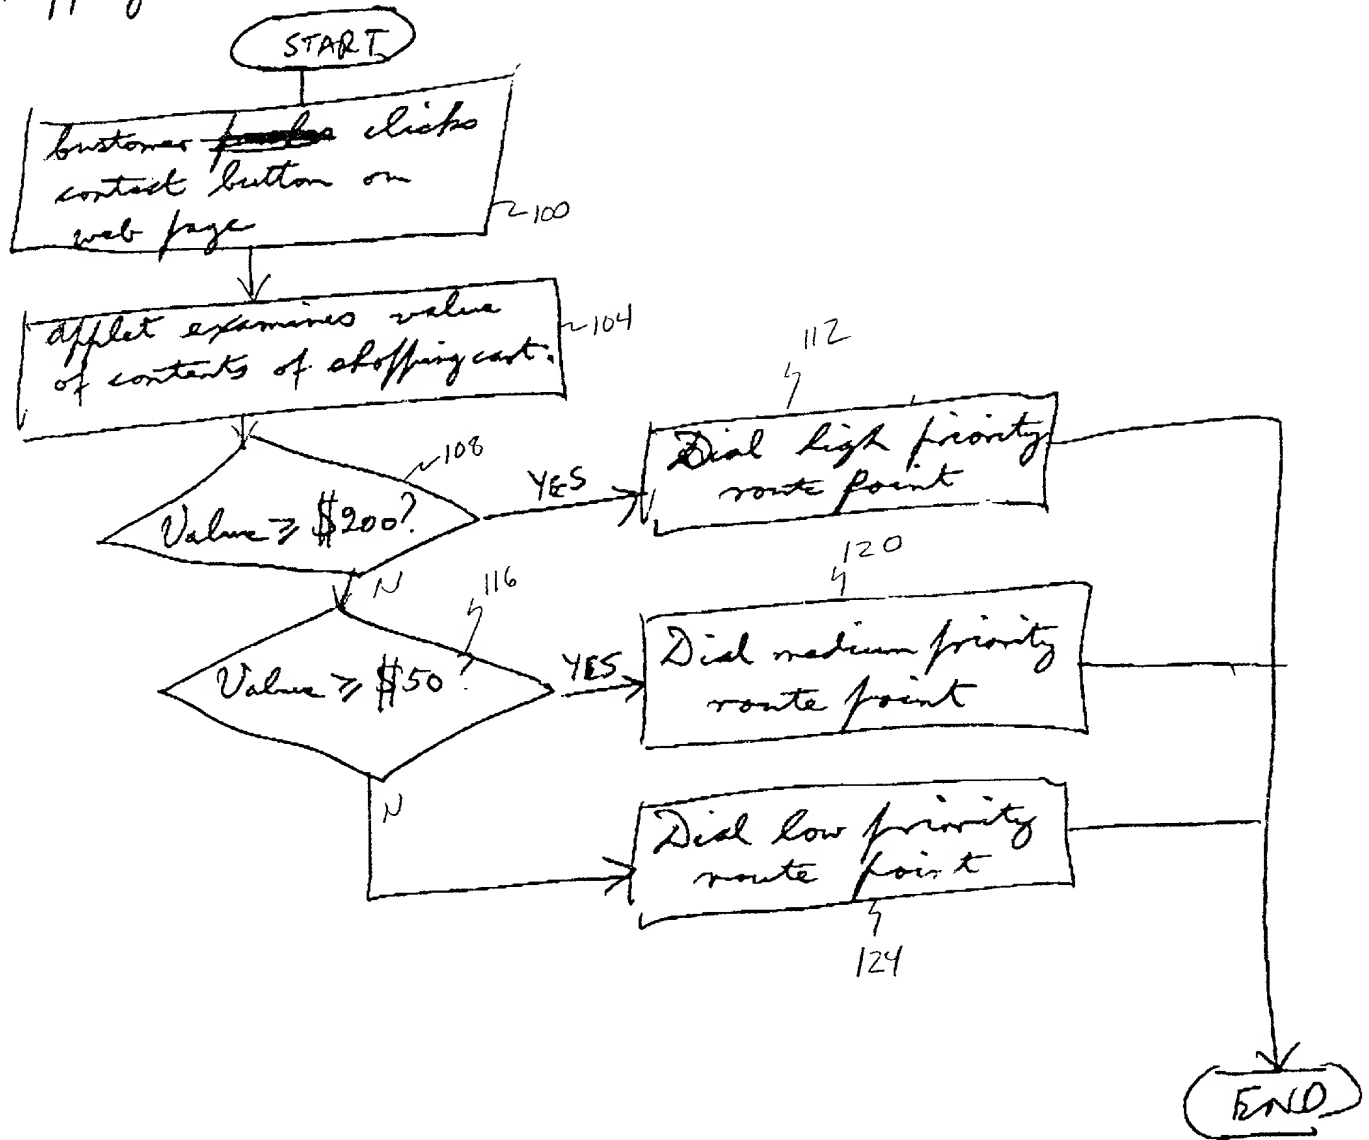 START
Customer clicks
contact button on
web page
100
applet examines value
of contents of shopping cart.
104
108
Value ≥ $200?
YES
N
112
Dial high priority
route point
116
Value ≥ $50?
YES
N
120
Dial medium priority
route point
Dial low priority
route point
124
END